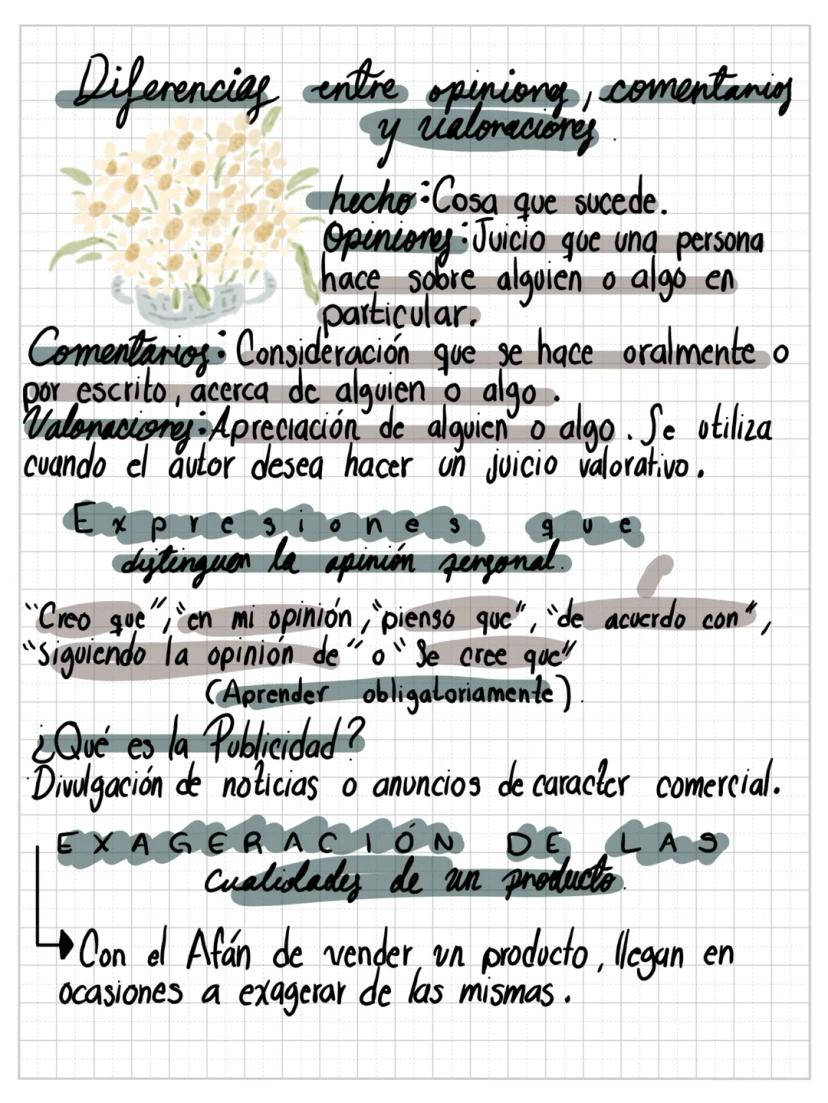 Diferencias entre opiniones, comentarios
y valoraciones.
hecho: Cosa que sucede.
Opiniones: Juicio que una persona
hace sobre alguien o algo en
particular.
Comentarios: Consideración que se hace oralmente o
por escrito, acerca de alguien o algo.
Valoraciones: Apreciación de alguien o algo. Se utiliza
cuando el autor desea hacer un juicio valorativo.
Expresiones que
distinguen la opinión personal.
"Creo que", "en mi opinión, "pienso que", "de acuerdo con",
"Siguiendo la opinión de" o "Se cree que"
(Aprender obligatoriamente).
¿Qué es la Publicidad?
Divulgación de noticias o anuncios de caracter comercial.
EXAGERACIÓN DE LAS
Cualidades de un producto.
Con el Afán de vender un producto, llegan en
ocasiones a exagerar de las mismas.